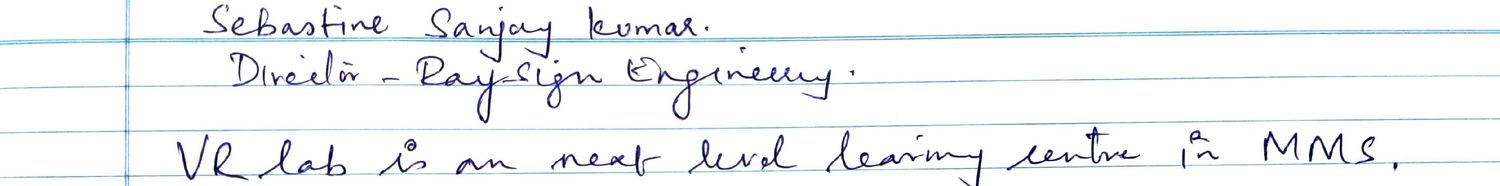 Sebastine Sanjay Kumar.
Director - Ray-Sign Engineering.
VR lab is an next level learning centre in MMS.